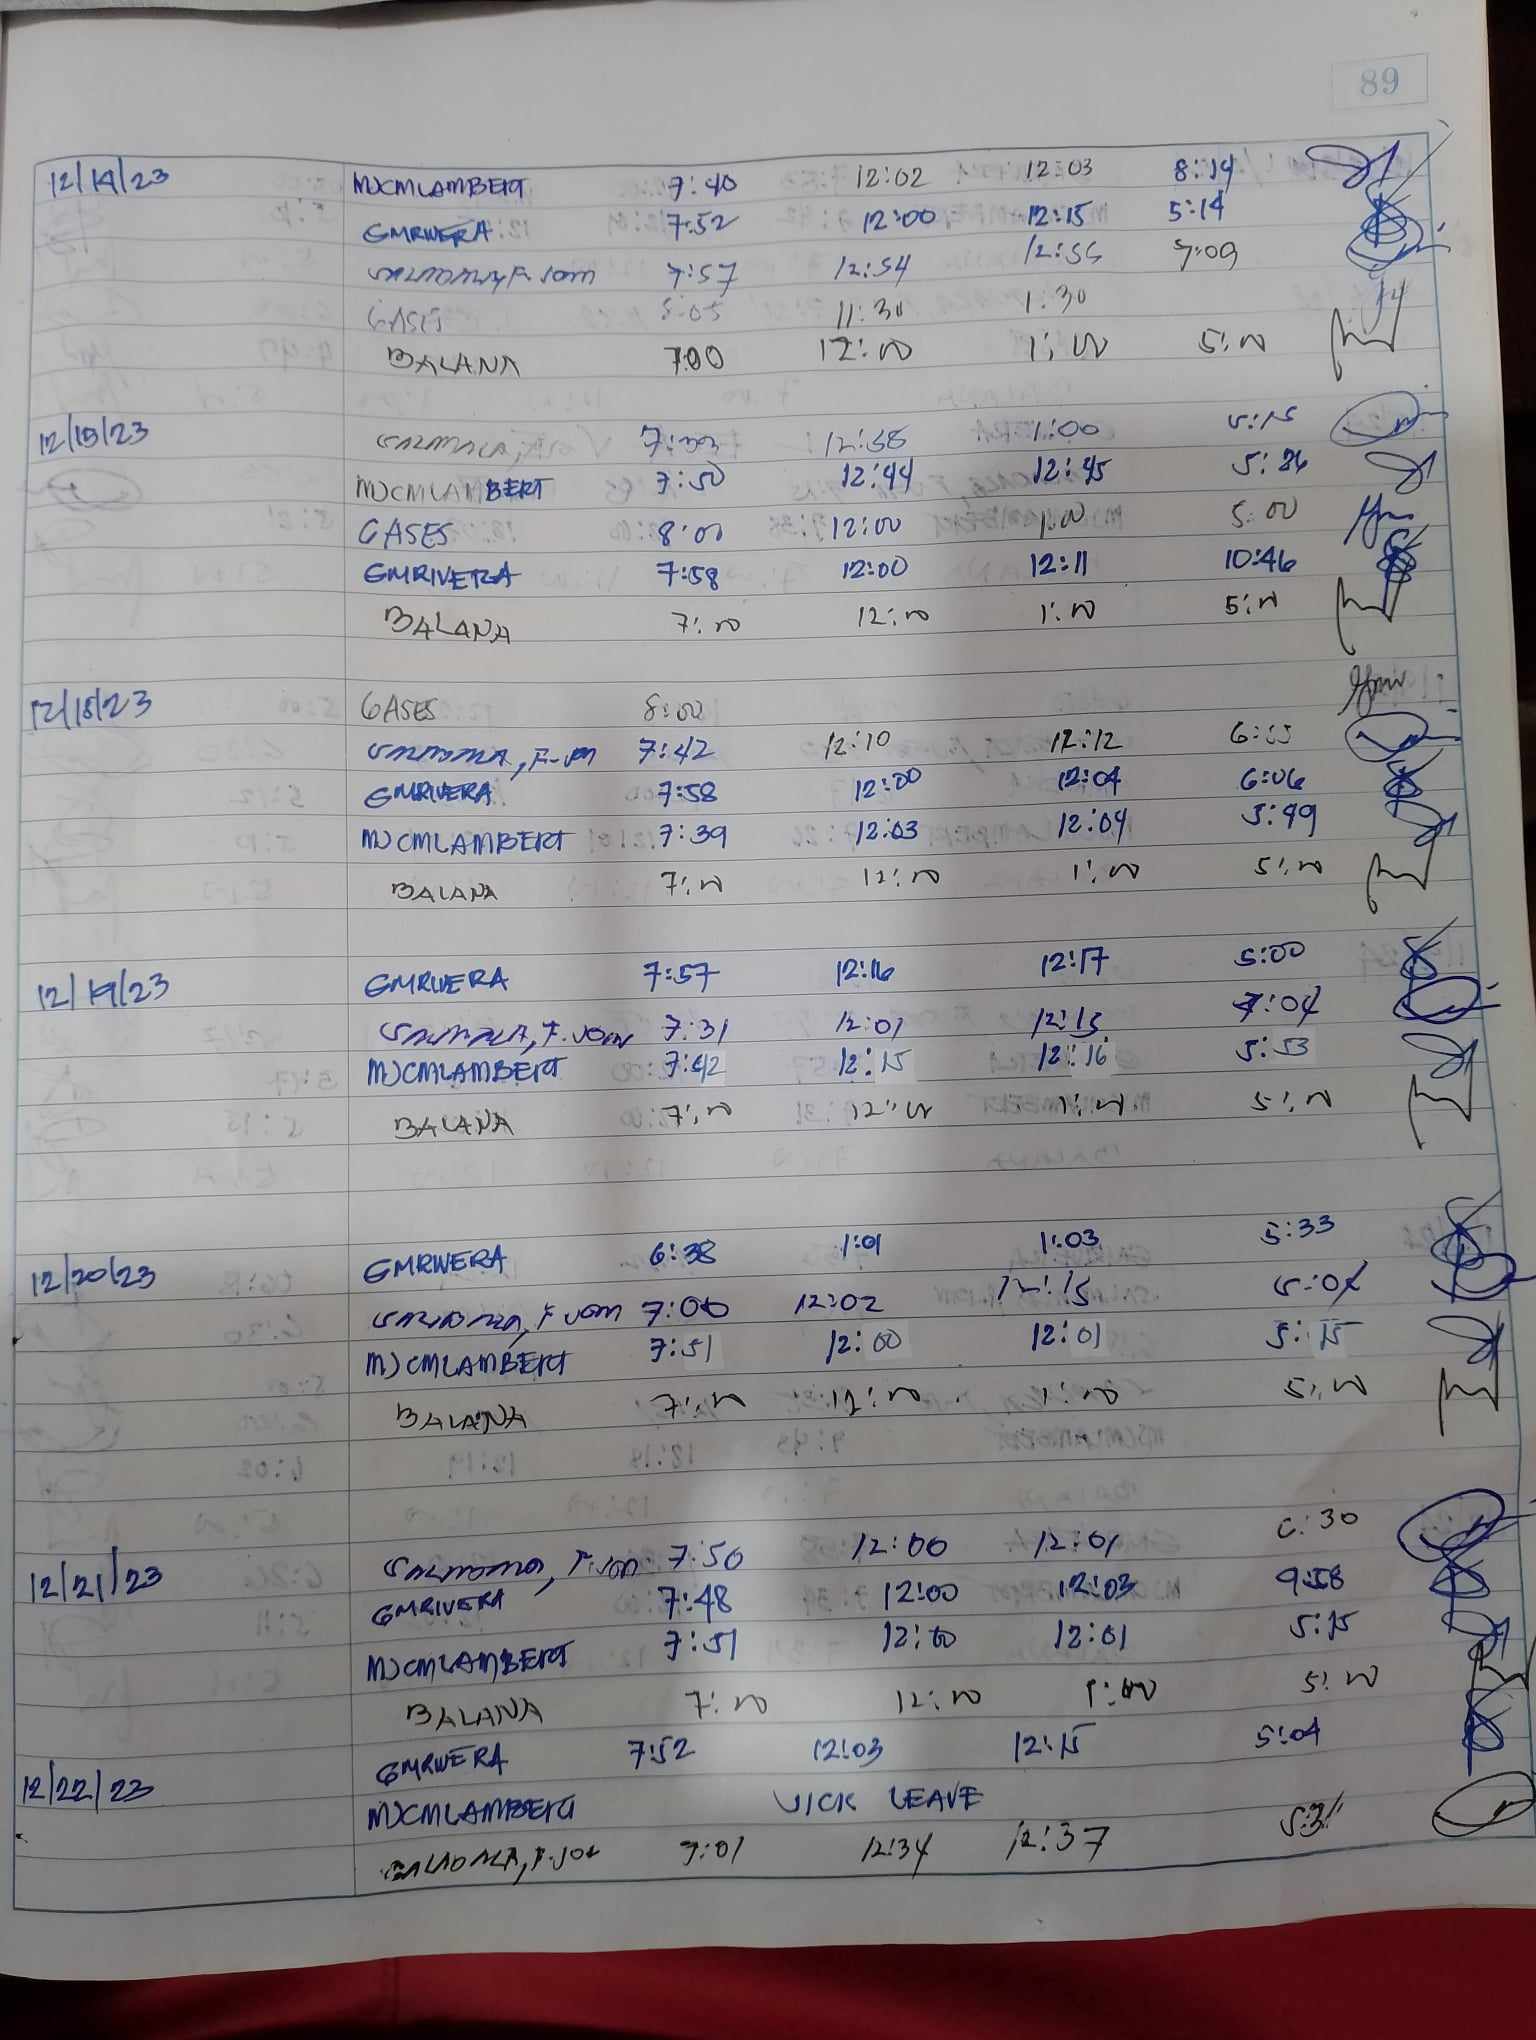 89
12/14/23 MJCMLAMBERT 7:40 12:02 12:03 8:14
GMRIVERA 7:52 12:00 12:15 5:14
7:57 12:54 12:55 7:09
GASES 8:05 11:30 1:30
BALANA 7:00 12:00 1:00 5:00
12/15/23 12:58 1:00 5:15
MJCMLAMBERT 7:50 12:44 12:45
GASES 8:00 12:00 1:00 5:00
GMRIVERA 7:58 12:00 12:11 10:46
BALANA 7:00 12:00 1:00 5:00
12/18/23 GASES 8:00
7:42 12:10 12:12
GMRIVERA 7:58 12:00 12:04 6:06
MJCMLAMBERT 7:39 12:03 12:04 5:49
BALANA 7:00 12:00 1:00 5:00
12/19/23 GMRIVERA 7:57 12:16 12:17 5:00
7:31 12:01 12:13 7:04
MJCMLAMBERT 7:42 12:15 12:16 5:53
BALANA 7:00 12:00 1:00 5:00
12/20/23 GMRIVERA 6:38 1:01 1:03 5:33
7:00 12:02 12:15 5:04
MJCMLAMBERT 7:51 12:00 12:01 5:15
BALANA 7:00 12:00 1:00 5:00
12/21/23 7:50 12:00 12:01
GMRIVERA 7:48 12:00 12:03 9:58
MJCMLAMBERT 7:51 12:00 12:01 5:15
BALANA 7:00 12:00 1:00 5:00
GMRIVERA 7:52 12:03 12:15 5:04
12/22/23 MJCMLAMBERT SICK LEAVE
12:34 12:37